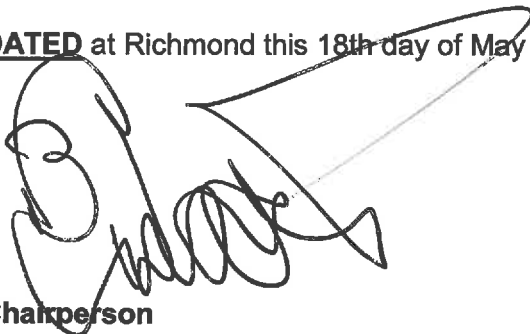 DATED at Richmond this 18th day of May
Chairperson